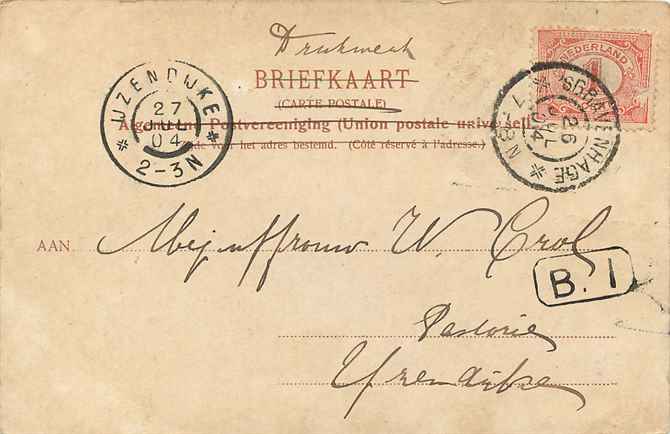 Drukwerk
BRIEFKAART
(CARTE POSTALE)
Algemeene Postvereeniging (Union postale universelle)
de voor het adres bestemd. (Côté réservé à l'adresse.)
NEDERLAND
1
'SGRAVENHAGE
26
JUL
04
7-8 N
IJZENDIJKE
27
JUL
04
2-3N
AAN Mejuffrouw W. Crol
B. 1
Pastorie
Yzendijke